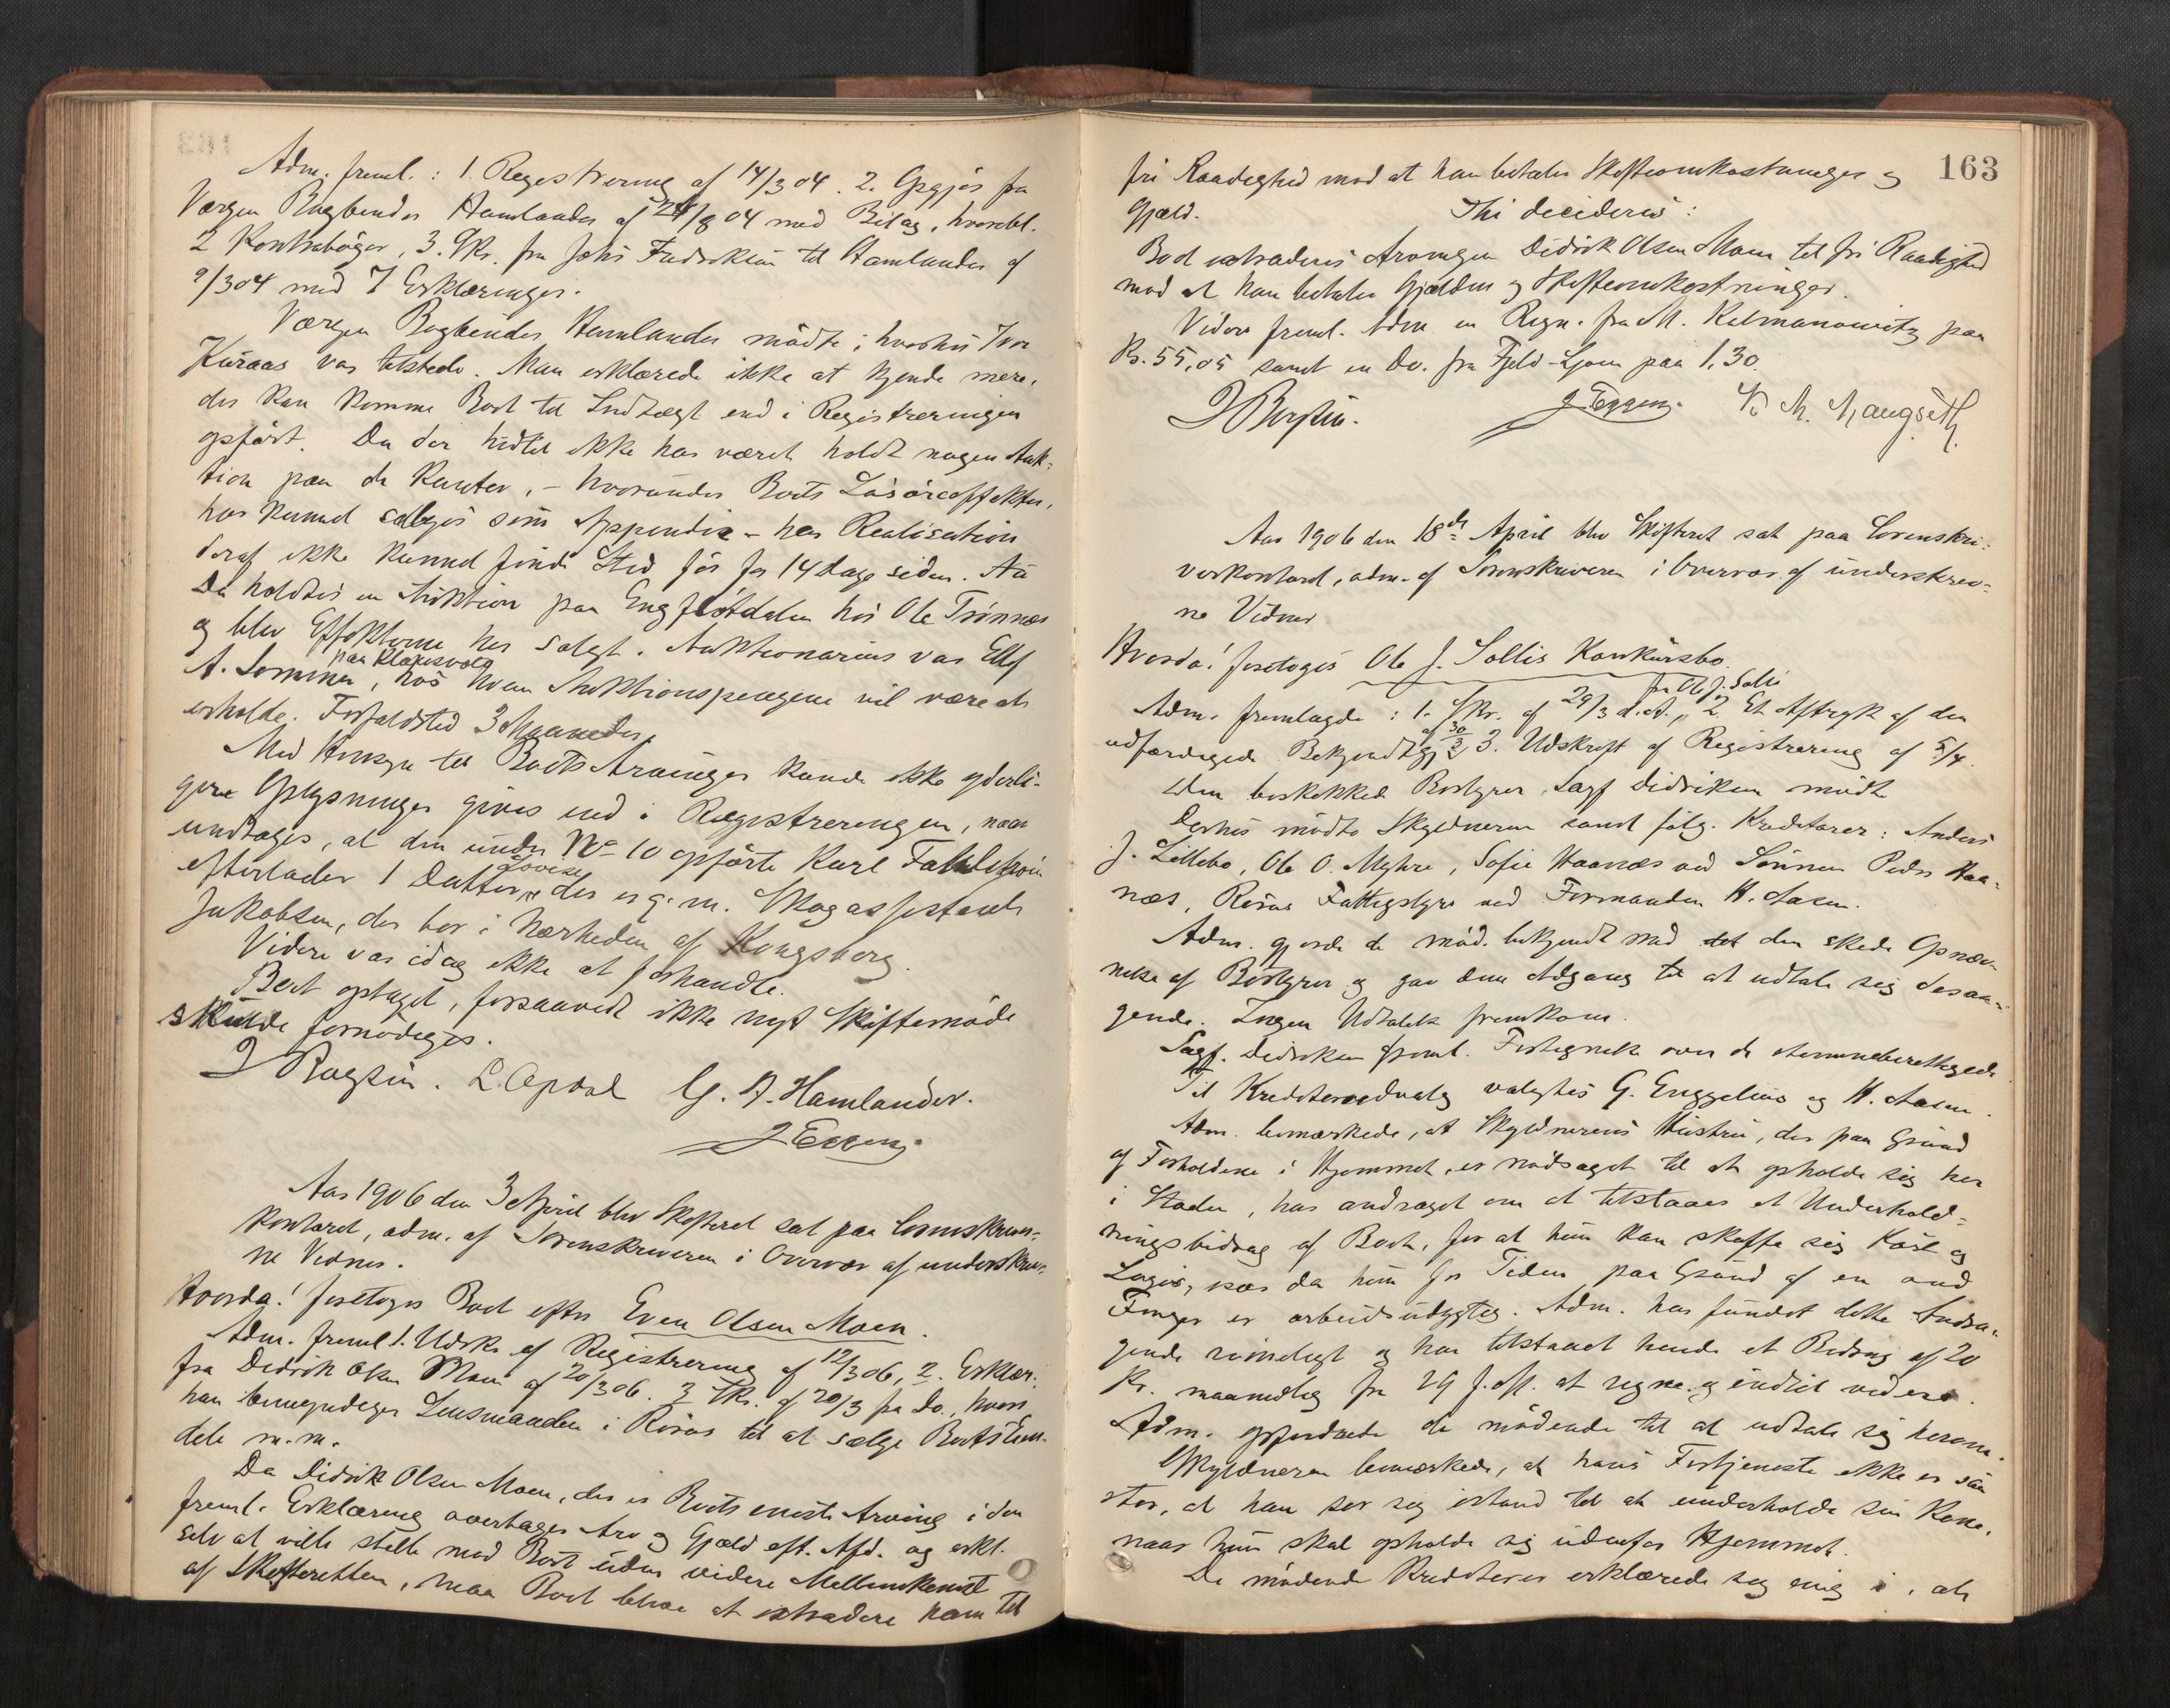 Adm. freml.: 1. Registrering af 14/3 04. 2. Opgjør fra
Værgen Bogbinder Hamlander af 24/8 04 med Bilag, hvoribl.
2 Kontrabøger, 3. Skr. fra Johs Fredriksen til Hamlander af
9/3 04 med 7 Erklæringer.
Værgen Bogbinder Hamlander mødte; hvorhos Iver
Kuraas var tilstede. Man erklærede ikke at kjende mere,
der kan komme Boet til Indtægt end i Registreringen
opført. Da der hidtil ikke har været holdt nogen Auk-
tion paa de Kanter, – hvorunder Boets Løsøreeffekter,
har kunnet sælges som Appendix – har Realisation
deraf ikke kunnet finde Sted før for 14 Dage siden.
Da holdtes en Auktion paa hos Ole Trønnes
og blev Effekterne her solgt. Auktionarius var Ellef
paa Klokervold
A. , hos hvem Auktionspengene vil være at
erholde. Forfaldstid 3 Maaneder.
Med Hensyn til Boets Arvinger kunde ikke yderli-
gere Oplysninger gives end i Registreringen, naar
undtages, at den under No 10 opførte Karl
Lovise
efterlader 1 Datter, der er g. m. Skogassistent
Jakobsen, der bor i Nærheden af Kongsberg.
Videre var idag ikke at forhandle.
Boet optaget, forsaavidt ikke nyt Skiftemøde
skulde fornødiges.
L. Opdal G. A. Hamlander.
J Eggen
Aar 1906 den 3 April blev Skifteret sat paa Sorenskriver-
kontoret, adm. af Sorenskriveren i Overvær af underskrev-
ne Vidner.
Hvorda! foretoges Boet efter Even Olsen Moen.
Adm. freml 1. Udskr. af Registrering af 12/3 06, 2. Erklær.
fra Didrik Olsen Moen af 20/3 06. 3 Skr. af 20/3 fra Do., hvori
han bemyndiger Lensmanden i Røros til at sælge Boets Eien-
dele m.m.
Da Didrik Olsen Moen, der er Boets eneste Arving i den
freml. Erklæring overtager Arv og Gjæld eft. Afd. og erkl.
selv at ville stelle med Boet uden videre Mellemkomst
af Skifteretten, maa Boet blive at extradere ham til
163
fri Raadighed mod at han betaler Skifteomkostninger og
Gjæld. Thi decideres:
Boet extraderes Arvingen Didrik Olsen Moen til fri Raadighed
mod at han betaler Gjælden og Skifteomkostninger.
Videre freml. Adm en Regn. fra M. Kalmanowitz paa
Kr. 55,05 samt en Do. fra Fjeld-Ljom paa 1,30.
J Eggen. M. Haugseth.
Aar 1906 den 18de April blev Skifteret sat paa Sorenskri-
verkontoret, adm. af Sorenskriveren i Overvær af underskrev-
ne Vidner
Hvorda! foretoges Ole J. Sollis Konkursbo.
fra Ole J. Solli
Adm. fremlagde: 1. Skr. af 29/3 d.A., 2. Et Aftryk af den
af 30/3
udfærdigede Bekjendtgj. 3. Udskrift af Registrering af 5/4.
Den beskikkede Bostyrer Sagf Didriksen mødte
Derhos mødte Skyldneren samt følg. Kreditorer: Anders
J. Lillebo, Ole O. Myhre, Sofie Haanæs ved Sønnen Peder Haa-
næs, Røros Fattigstyre ved Formanden H. Aasen.
Adm. gjorde de mød. bekjendt med det den skede Opnæv-
nelse af Bostyrer og gav dem Adgang til at udtale sig desan-
gende. Ingen Udtalelse fremkom.
Sagf. Didriksen freml. Fortegnelse over de stemmeberettigede.
Til Kreditorudvalg valgtes G. Enggelius og H. Aasen.
Adm. bemærkede, at Skyldnerens Hustru, der paa Grund
af Forholdene i Hjemmet, er nødsaget til at opholde sig her
i Staden, har andraget om at tilstaaes et Underhold-
ningsbidrag af Boet, for at hun kan skaffe sig Kost og
Logis, især da hun for Tiden paa Grund af en ond
Finger er arbeidsudygtig. Adm. har fundet dette Andra-
gende rimeligt og har tilstaaet hende et Bidrag af 20
Kr. maanedlig fra 29 f. M. at regne og indtil videre.
Adm. opfordrede de mødende til at udtale sig herom.
Skyldneren bemærkede, at hans Fortjeneste ikke er saa
stor, at han ser sig istand til at underholde sin Kone,
naar hun skal opholde sig udenfor Hjemmet.
De mødende Kreditorer erklærede sig enig i, at